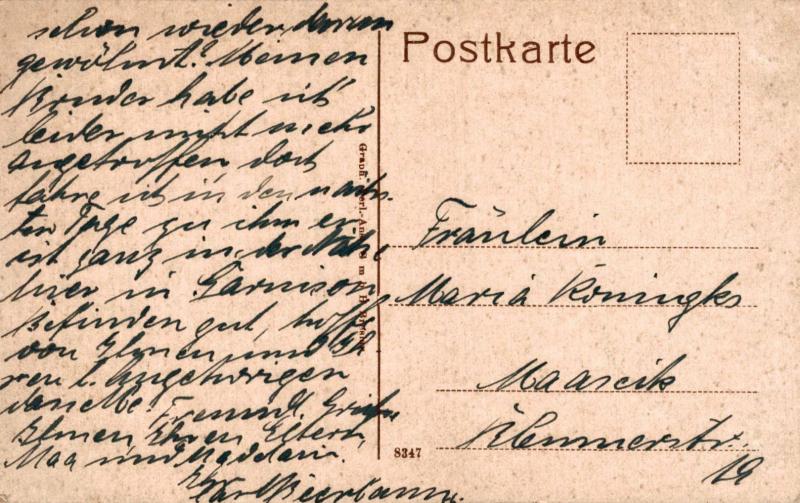 schon wieder daran
gewöhnt? Meinen
Bruder habe ich
leider nicht mehr
angetroffen doch
fahre ich in den näch-
ten Tage zu ihm er
ist ganz in der Nähe
hier in Garnison
Befinden gut, hoffe
von Ihnen und Ih-
ren l. Angehörigen
dasselbe! Freundl. Grüße
Ihnen, Ihren Eltern,
und
Ihr
Karl
Postkarte
Fräulein
Maria Koningks
Maaseik
19
8347